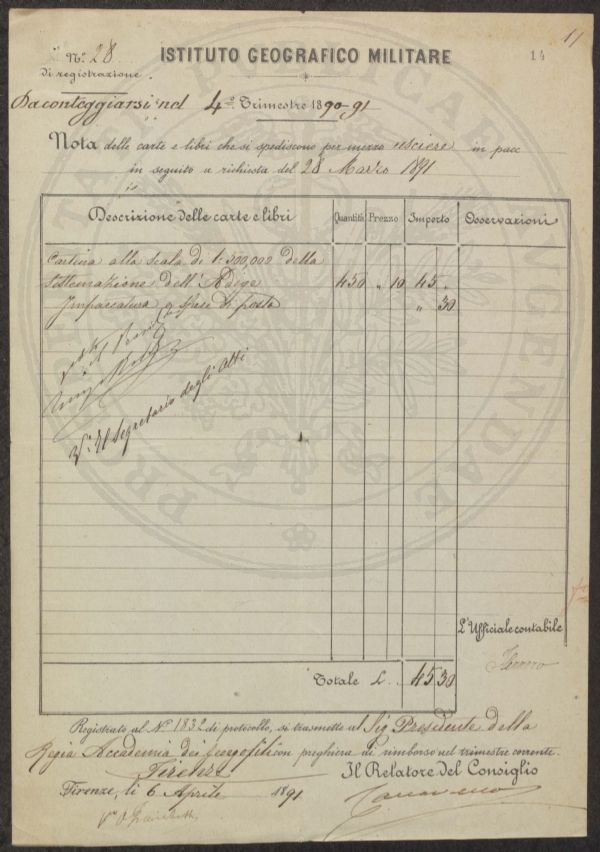 11
14
N.° 28
di registrazione
ISTITUTO GEOGRAFICO MILITARE
Da conteggiarsi nel 4° Trimestre 1890-91
Nota delle carte e libri che si spediscono per mezzo usciere in pacc
in seguito a richiesta del 28 Marzo 1891
Descrizione delle carte e libri Quantità Prezzo Importo Osservazioni
Cartina alla scala di 1:300,000 della
sistemazione dell'Adige 450 " 10 45 "
Impaccatura e spese di posta " 30
V.° Il Segretario degli Atti
L'Ufficiale contabile
Totale L. 45 30
Registrato al N.° 1832 di protocollo, si trasmette al Sig Presidente della
Regia Accademia dei Georgofili con preghiera di rimborso nel trimestre corrente.
Firenze
Il Relatore del Consiglio
Firenze, li 6 Aprile 1891